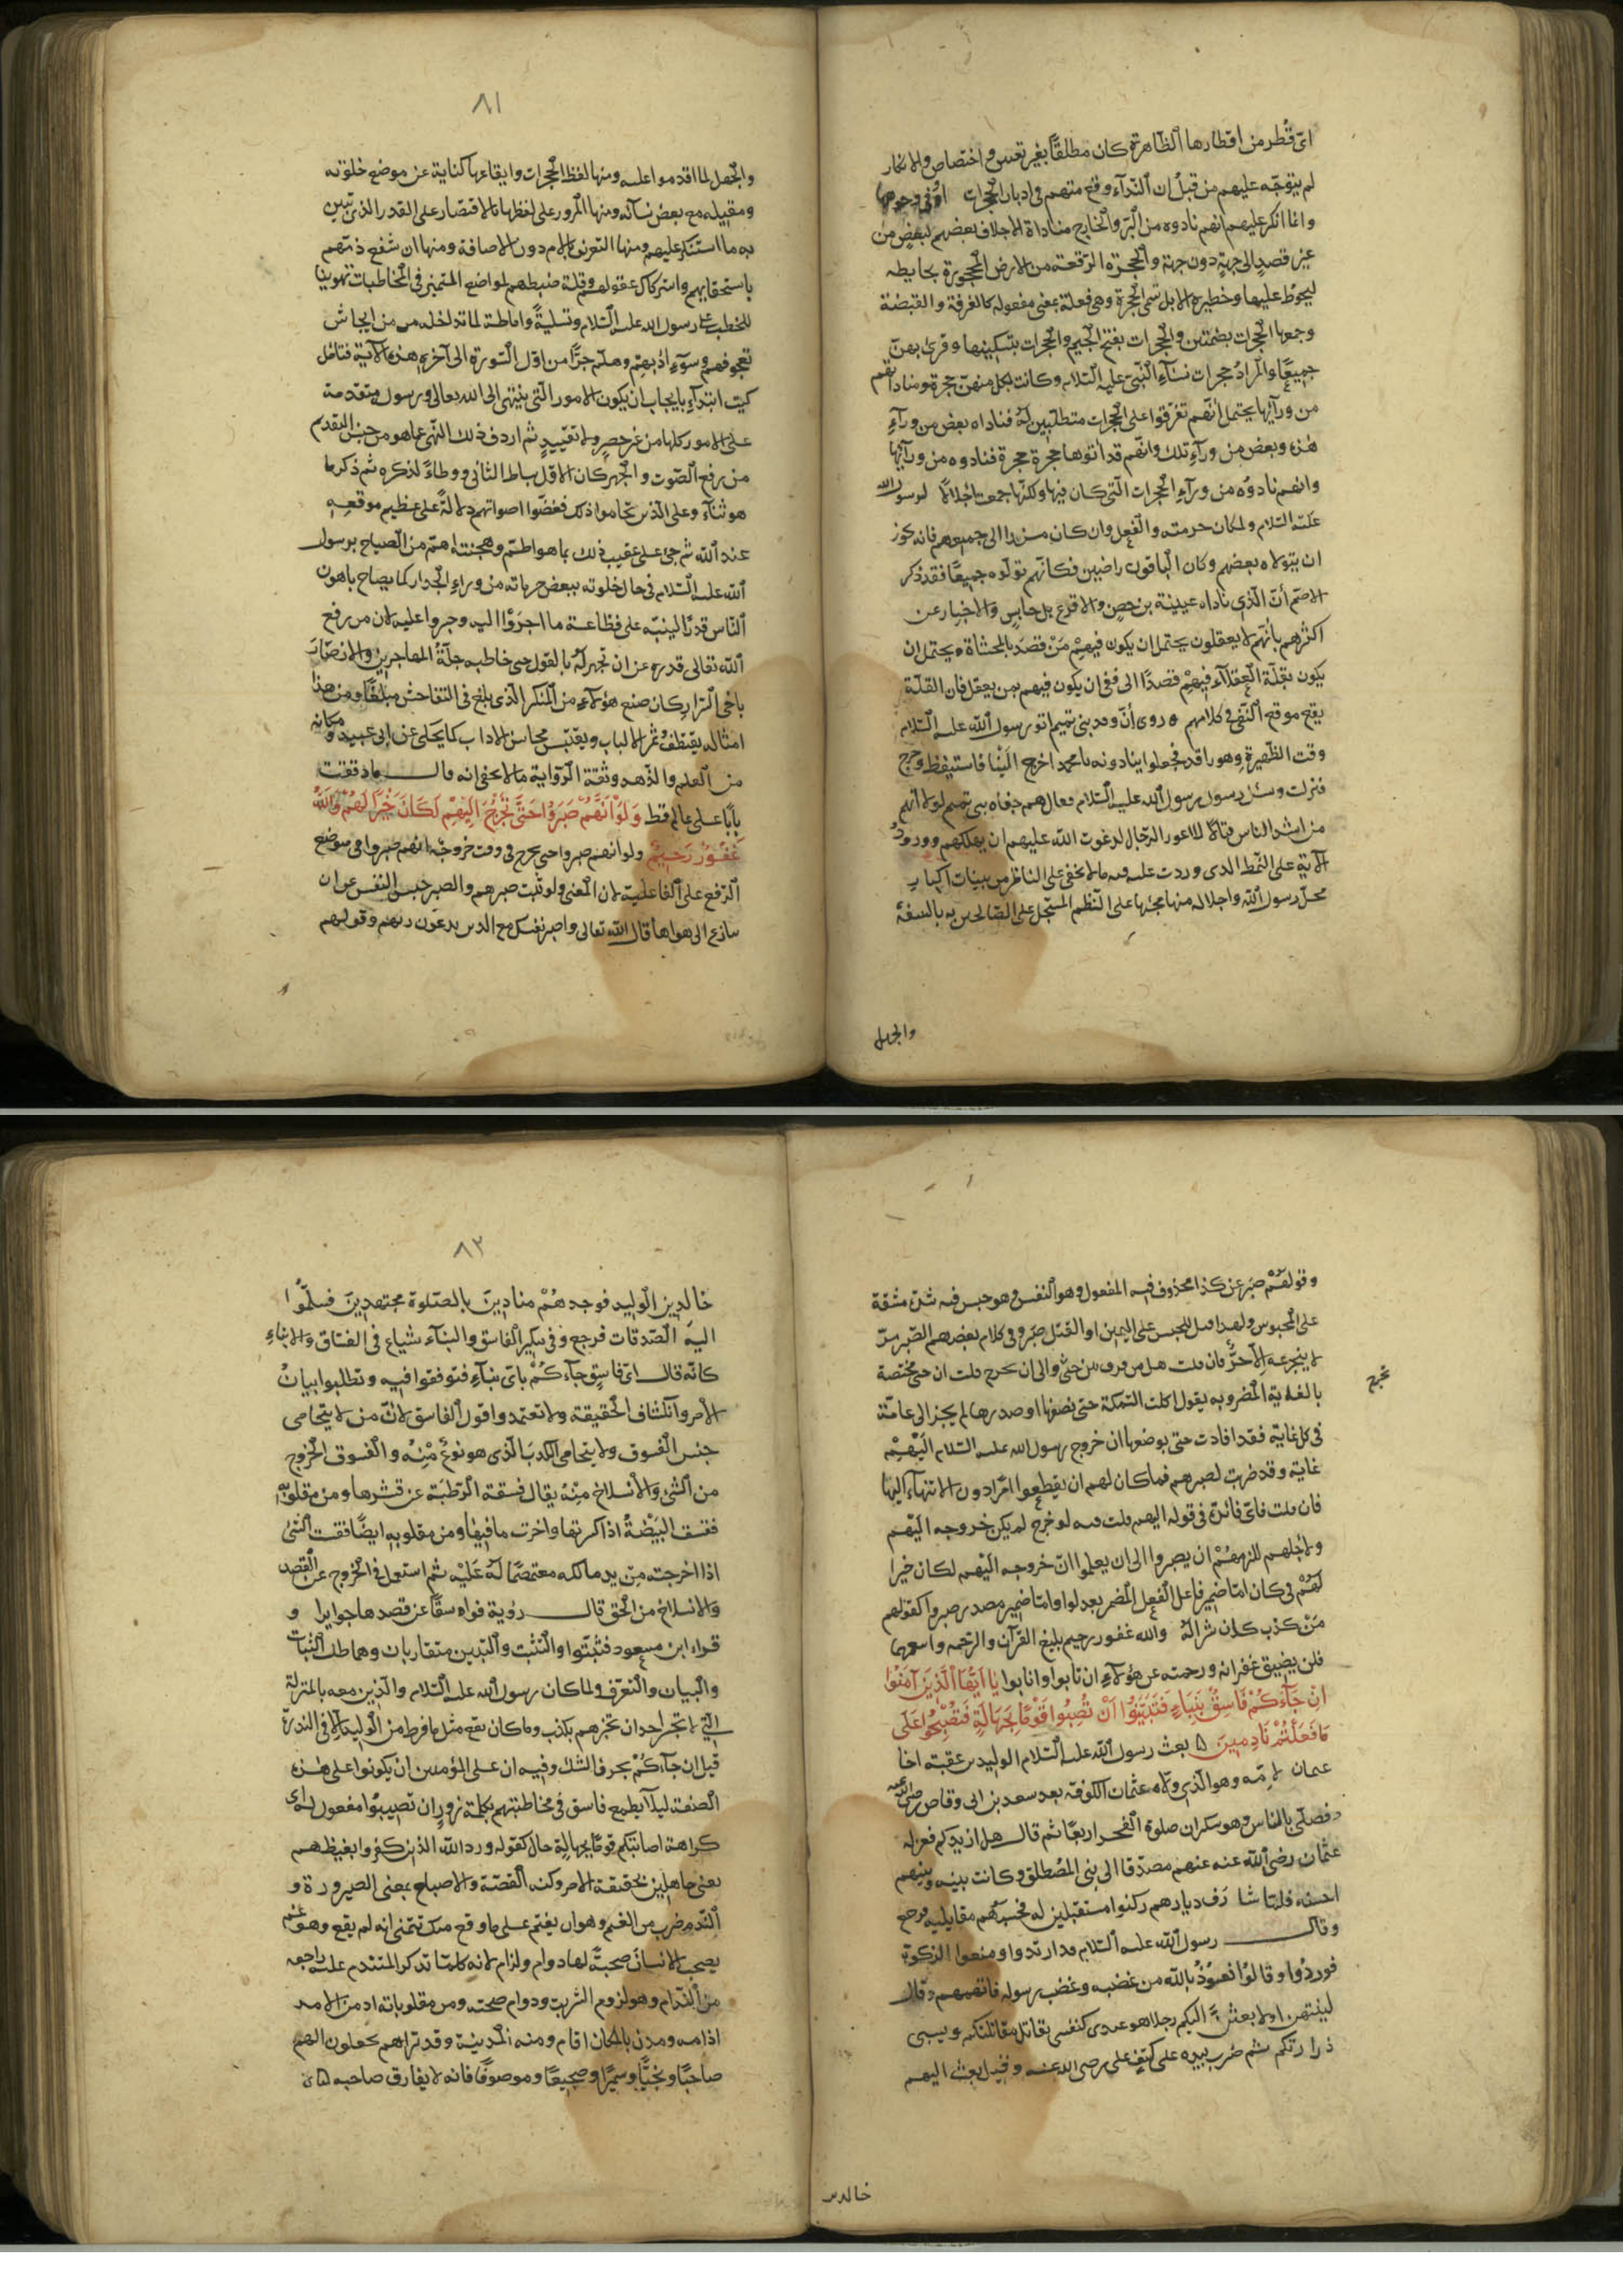 اىّ قُطر من اقطارها الظاهرة كان مطلقًا بغير تعيين واختصاص والانكار
لم يتوجّه عليهم من قبل ان النّداء وقع منهم فى ادبار الحجرات اوفى وجوهها
وانما انكر عليهم انهم نادوه من البرّ والخارج مناداة الاجلاف بعضهم لبعض من
غير قصد الى جهة دون جهة والحجرة الرّقعة من الارض المحجورة بحايطه
ليحوّط عليها وخطيرة الابل تسمى الحجرة وهى فعلة بمعنى مفعوله كالغرفة والقبضة
وجمعها الحجرات بضمتين والحجرات بفتح الجيم والحجرات بتسكينها وقرئ بهنّ
جميعًا والمراد حجرات نسآء النّبى عليه السّلام وكانت لكل منهنّ حجرة ومناداتهم
من ورآئها يحتمل انّهم تفرّقوا على الحجرات متطلّبين له فناداه بعض من ورآء
هذه وبعض من ورآء تلك وانّهم قد اتوها حجرة حجرة فنادوه من ورآئها
وانهم نادوه من ورآء الحجرات الّتى كان فيها ولكنّها جمعت اجلالًا لرسول الله
عليه السّلام ولمكان حرمته والفعل وان كان مسندا الى جميعهم فانه يجوز
ان يتولاه بعضهم وكان الباقون راضين فكانّهم تولّوه جميعًا فقد ذكر
الاصمّ انّ الّذى ناداه عيينة بن حصن والاقرع بن حابس والاخبار عن
اكثرهم بانّهم لا يعقلون يحتمل ان يكون فيهم مَنْ قصد بالمحاشاة ويحتمل ان
يكون بقلّة العقلآء فيهم قصدًا الى نفى ان يكون فيهم من يعقل فان القلّة
يقع موقع النّفى فى كلامهم ه روى انّ وفد بنى تميم اتو رسول الله عليه السّلام
وقت الظّهيرة وهو راقد فجعلوا ينادونه يا محمد اخرج الينا فاستيقظ وخرج
فنزلت وسئل رسول الله عليه السّلام فقال هم جفاه بنى تميم لولا انهم
من اشد الناس قتالًا للاعور الدجّال لدعوت الله عليهم ان يهلكهم وورود
الآية على النّمط الذى وردت عليه فيه ما لا يخفى على الناظر من بينات اكبار
محلّ رسول الله واجلاله منها مجئها على النظم المسجّل على الصّائحين به بالسفه
والجهل
٨١
والجهل لما اقدموا عليه ومنها لفظ الحجرات وايقاعها كناية عن موضع خلوته
ومقيله مع بعض نسآئه ومنها المرور على لفظها بالاقتصار على القدر الذى تبين
به ما استنكر عليهم ومنها التعريف باللام دون الاضافة ومنها ان شفع ذمّهم
باستجفائهم واستركاك عقولهم وقلة ضبطهم لمواضع التمييز فى المخاطبات تهوينا
للخطب على رسول الله عليه السّلام وتسليةً واماطة لما تداخله من ايحاش
تعجرفهم وسوء ادبهم وهلمّ جرًّا من اوّل السّورة الى آخر هذه الآية فتامّل
كيف ابتدآء بايجاب ان يكون الامور الّتى ينتهى الى الله تعالى ورسوله متقدمة
على الامور كلها من غير حصر ولا تقييد ثم اردف ذلك النّهى عما هو من جنس التقدم
من رفع الصّوت والجهر كان الاوّل بساط الثانى ووطاءً لذكره ثم ذكر ما
هو ثناء على الّذين تحاموا ذلك فغضّوا اصواتهم دلالةً على عظيم موقعه
عند الله ثم جئ على عقيب ذلك بما هو اطمّ وهجنته اتمّ من الصياح برسول
الله عليه السّلام فى حال خلوته ببعض حرماته من وراء الجدار كما يصاح باهون
النّاس قدرًا لينبّه على فظاعة ما اجروا اليه وجروا عليه لان من رفع
الله تعالى قدره عن ان تجهر له بالقول حتى خاطبه جلّة المهاجرين والانصار
باخى السّرار كان صنع هؤلاء من المنكر الذى بلغ فى التفاحش مبلغًا ومن هذا
امثاله يقتطف ثمر الالباب ويقتبس محاسن الاداب كما يحكى عن ابى عبيد ومكانه
من العلم والزّهد وثقة الرّواية ما لا يخفى انه قال ما دققت
بابًا على عالم قط وَلَوْ اَنَّهُمْ صَبَرُوا حَتَّى تَخْرُجَ اِلَيْهِمْ لَكَانَ خَيْرًا لَهُمْ وَاللهُ
غَفُورٌ رَحِيمٌ ولو انهم صبروا حتى يخرج فى وقت خروجه انهم صبروا فى موضع
الرّفع على الفاعليّة لان المعنى ولو ثبت صبرهم والصبر حبس النفس عن ان
تنازع الى هواها قال الله تعالى واصبر نفسك مع الذين يدعون ربهم وقولهم
وقولهم صبر عن كذا محذوف فيه المفعول وهو النفس وهو حبس فيه شدّة مشقة
على المحبوس ولهذا قيل للحبس على اليمين او القتل صَبر وفى كلام بعضهم الصّبر مرّ
لا يتجرعه الا حرٌّ فان قلت هل من فرق بين حتّى والى ان تخرج قلت ان حتى مختصة
بالغاية المضروبه يقول اكلت السّمكة حتى نصفها او صدرها لم يجز الى عامّة
فى كل غاية فقد افادت حتى بوضعها ان خروج رسول الله عليه السّلام اليهم
غاية وقد ضربت لصبرهم فما كان لهم ان يقطعوا امرًا دون الانتهاء اليها
فان قلت فاىّ فائدة فى قوله اليهم قلت فيه لو خرج لم يكن خروجه اليهم
ولاجلهم للزمهم ان يصبروا الى ان يعلموا انّ خروجه اليهم لكان خيرا
لهم فى كان امّا ضمير فاعل الفعل المضمر بعد لو او امّا ضمير مصدر صبروا كقولهم
مَنْ كذب كان شرًا له والله غفور رحيم بليغ القرآن والرّحمه واسعهما
فلن يضيق غفرانه ورحمته عن هؤلاء ان تابوا وانابوا يَا اَيُّهَا الَّذِينَ آمَنُوا
اِنْ جَآءَكُمْ فَاسِقٌ بِنَبَاءٍ فَتَبَيَّنُوا اَنْ تُصِيبُوا قَوْمًا بِجَهَالَةٍ فَتُصْبِحُوا عَلَى
مَا فَعَلْتُمْ نَادِمِينَ ه بعث رسول الله عليه السّلام الوليد بن عقبة اخا
عثمان لامّه وهو الّذى ولاه عثمان الكوفة بعد سعد بن ابى وقاص رضى الله عنه
فصلّى بالناس وهو سكران صلوة الفجر اربعًا ثم قال هل ازيدكم فعزله
عثمان رضى الله عنه عنهم مصدّقا الى بنى المصطلق وكانت بينه وبينهم
احنه فلمّا شارف ديارهم ركبوا مستقبلين له فحسبهم مقاتليه فرجع
وقال رسول الله عليه السّلام قد ارتدوا ومنعوا الزكوة
فوردوا وقالوا نعوذ بالله من غضبه وغضب رسوله فاتهمهم وقال
لينتهن او لابعثنّ اليكم رجلا هو عندى كنفسى يقاتل مقاتلتكم ويسبى
ذراريكم ثم ضرب بيده على كتف على رضى الله عنه وقيل بعث اليهم
خالد بن
٨٣
خالد بن الوليد فوجدهُمْ منادين بالصّلوة مجتهدين فسلّموا
اليه الصّدقات فرجع وفى تنكير الفاسق والنبآء شياع فى الفسّاق والانباء
كانّه قال اىّ فاسق جآءكُمْ باىّ نبآءٍ فتوقفوا فيه وتطلبوا بيان
الامر وانكشاف الحقيقة ولا تعتمدوا قول الفاسق لانّ من لا يتحامى
جنس الفسوق ولا يتحامى الكذب الّذى هو نوع مِنْه والفسوق الخروج
من الشئ والانسلاخ مِنْه يقال فسقة الرّطبة عن قشرها ومن مقلوبه
فقست البيْضة اذا كسرتها واخرجت ما فيها ومن مقلوبه ايضًا قفست الشئ
اذا اخرجته مِن يد مالكه مغتصبًا له عَلَيْه ثم استعمل فى الخروج عن القصد
والانسلاخ من الحق قال رؤبة فواسقًا عن قصدها جوايرا و
قراء ابن مسعود فتثبّتوا والتثبت والتبين متقاربان وهما طلب الثّبات
والبيان والتعرّف ولما كان رسول الله عليه السّلام والّذين معه بالمنزلة
الّتى لا تجسر احد ان تخبرهم بكذب وما كان يقع مثل ما فرط من الوليد الا فى الندرة
قيل ان جآءكُمْ بحرف الشك وفيه ان على المؤمنين ان يكونوا على هذه
الصفة ليلا يطمع فاسق فى مخاطبتهم بكلمة زور ان تصيبوا مفعول له اى
كراهة اصابتكم قومًا بجهالة حال كقوله ورد الله الذين كفروا بغيظهم
يعنى جاهلين بحقيقة الامر وكنه القصّة والاصباح بمعنى الصيرورة و
النّدم ضرب من الغم وهو ان يغتم على ما وقع منك تتمنى انه لم يقع وهو غم
يصحب الانسان صحبةً لها دوام ولزام لانه كلما تذكر المتندم عليه راجعه
من النّدام وهو لزوم الشريب ودوام صحبته ومن مقلوباته ادمن الامر
ادامه ومدن بالمكان اقام ومنه المدينة وقد تراهم يجعلون الهم
صاحبًا ونجيًّا وسميرًا وضجيعًا وموصوفًا فانه لا يفارق صاحبه ه